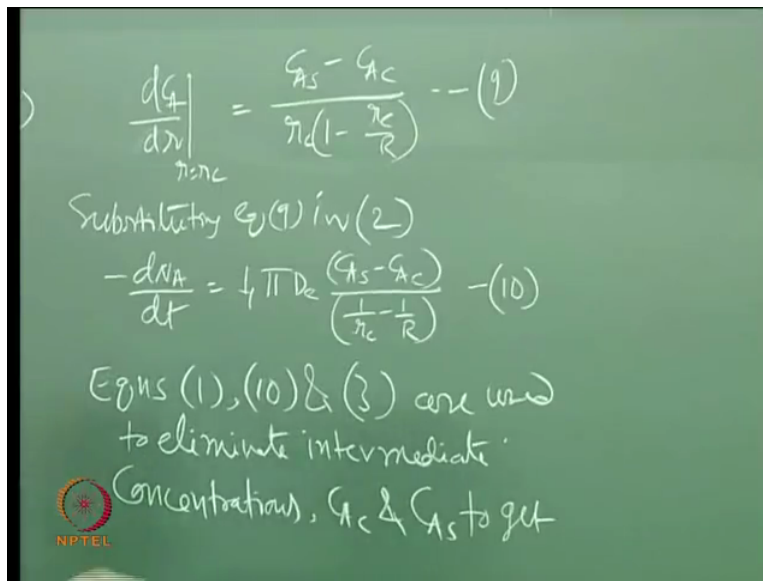 ) dC_A/dr |_{r=r_c} = (C_AS - C_AC) / (r_c(1 - r_c/R)) -- (9)
Substituting eq (9) in (2)
-dN_A/dt = 4πD_e (C_AS - C_AC) / (1/r_c - 1/R) - (10)
Eqns (1), (10) & (3) are used
to eliminate intermediate
Concentrations, C_AC & C_AS to get
NPTEL